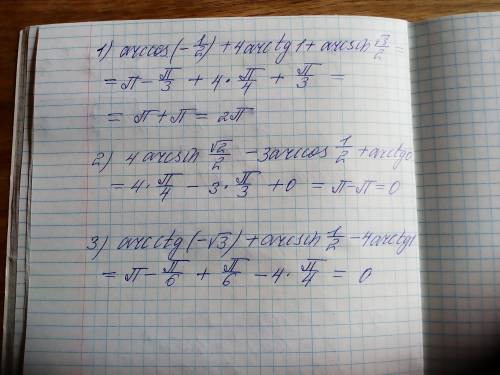 1) arccos(-1/2) + 4arctg1 + arcsin √3/2 =
= π - π/3 + 4 · π/4 + π/3 =
= π + π = 2π
2) 4 arcsin √2/2 - 3arccos 1/2 + arctg0
= 4 · π/4 - 3 · π/3 + 0 = π - π = 0
3) arcctg(-√3) + arcsin 1/2 - 4arctg1
= π - π/6 + π/6 - 4 · π/4 = 0